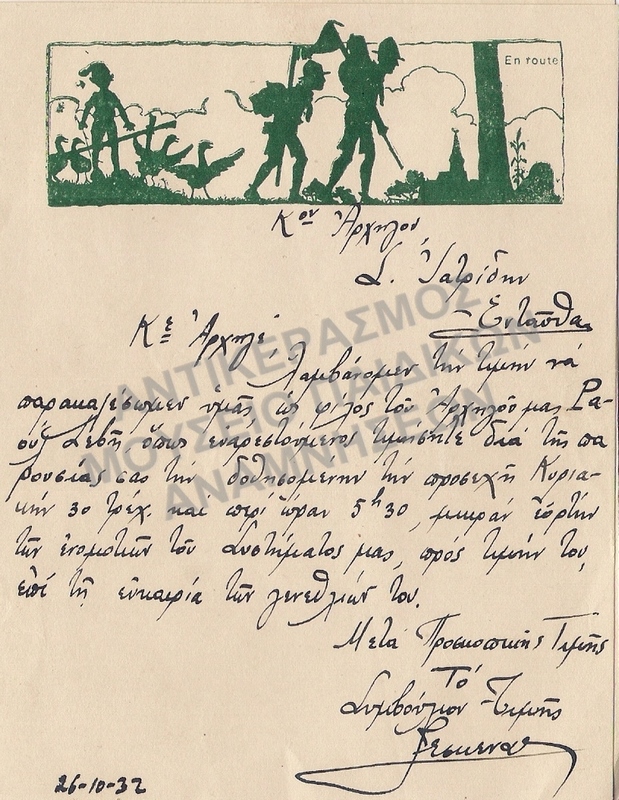 En route
Κον Ἀρχηγόν
Σ. Ἰατρίδην
Ἐνταῦθα
Κε Ἀρχηγέ
Λαμβάνομεν τὴν τιμὴν νὰ
παρακαλέσωμεν ὑμᾶς ὡς φίλος τοῦ Ἀρχηγοῦ μας Ρα-
οὺλ Λεβῆ ὅπως εὐαρεστούμενος τιμήσητε διὰ τῆς πα
ρουσίας σας τὴν δοθησομένην τὴν προσεχῆ Κυρια-
κὴν 30 τρέχ. καὶ περὶ ὥραν 5 ἡ 30, μικρὰν ἑορτὴν
τῶν ἐνομοτιῶν τοῦ Συστήματος μας, πρὸς τιμήν του,
ἐπὶ τῇ εὐκαιρίᾳ τῶν γενεθλίων του.
Μετὰ Προσκοπικῆς Τιμῆς
Τὸ
Συμβούλιον Τιμῆς
26-10-32
ΑΝΤΙΚΕΡΑΣΜΟΣ
ΜΟΥΣΕΙΟ ΠΑΙΔΙΚΩΝ
ΑΝΑΜΝΗΣΕΩΝ